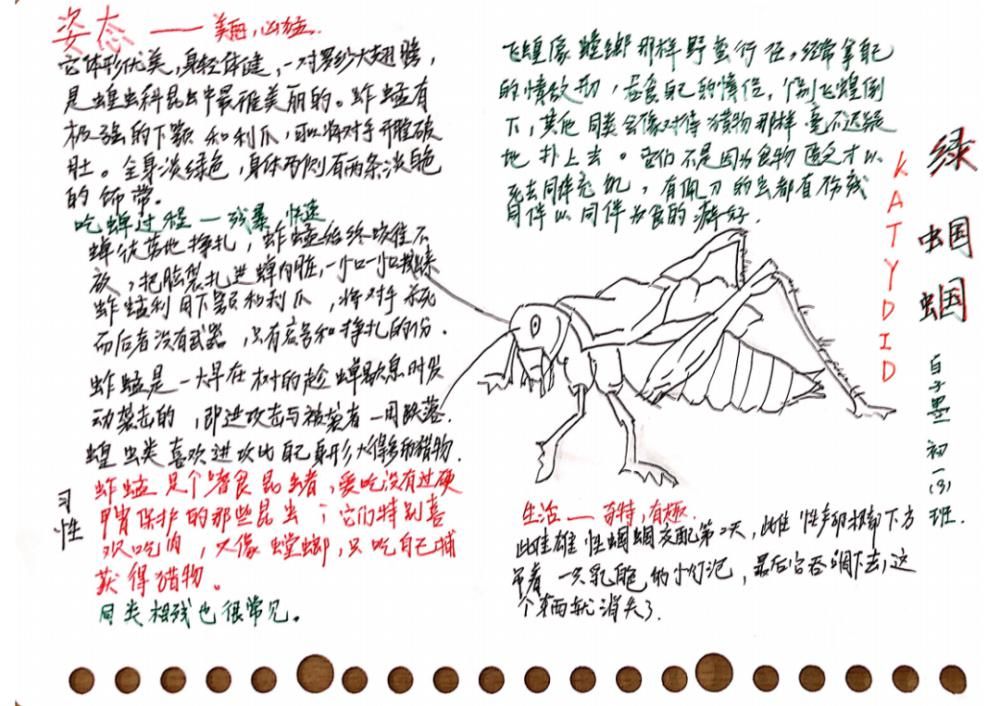 姿态——美丽,凶猛.
它体形优美,身轻体健,一对罗纱大翅膀,
是蝗虫科昆虫中最雅美丽的。蚱蜢有
极强的下颚和利爪,可以将对手开膛破
肚。全身淡绿色,身体两侧有两条淡色
的饰带。
吃蝉过程—残暴,快速
蝉徒劳地挣扎,蚱蜢始终咬住不
放,把脑袋扎进蝉内脏,一小口一小口
蚱蜢利用下颚和利爪,将对手杀死
而后者没有武器,只有哀号和挣扎的份.
蚱蜢是一大早在树的趁蝉歇息时发
动袭击的,即进攻击与被袭者一同跌落.
蝗虫类喜欢进攻比自己身形大得多的猎物.
习性
蚱蜢是个嗜食昆虫者,爱吃没有过硬
甲胄保护的那些昆虫;它们特别喜
欢吃肉,又像螳螂,只吃自己捕
获得猎物。
同类相残也很常见。
飞蝗像螳螂那样野蛮行径,经常拿自己
的情敌,吞食自己的情侣,个别飞蝗倒
下,其他同类会像对待猎物那样毫不迟疑
地扑上去。它们不是因为食物匮乏才以
死去同伴充饥,有佩刀的虫都有伤残
同伴以同伴为食的癖好.
绿蝈蝈
KATYDID
白子墨 初一(3)班.
生活——奇特,有趣.
雌雄性蝈蝈交配第2天,雌性产卵下方
带着一只乳色的小灯泡,最后它吞咽下去,这
个东西就消失了.